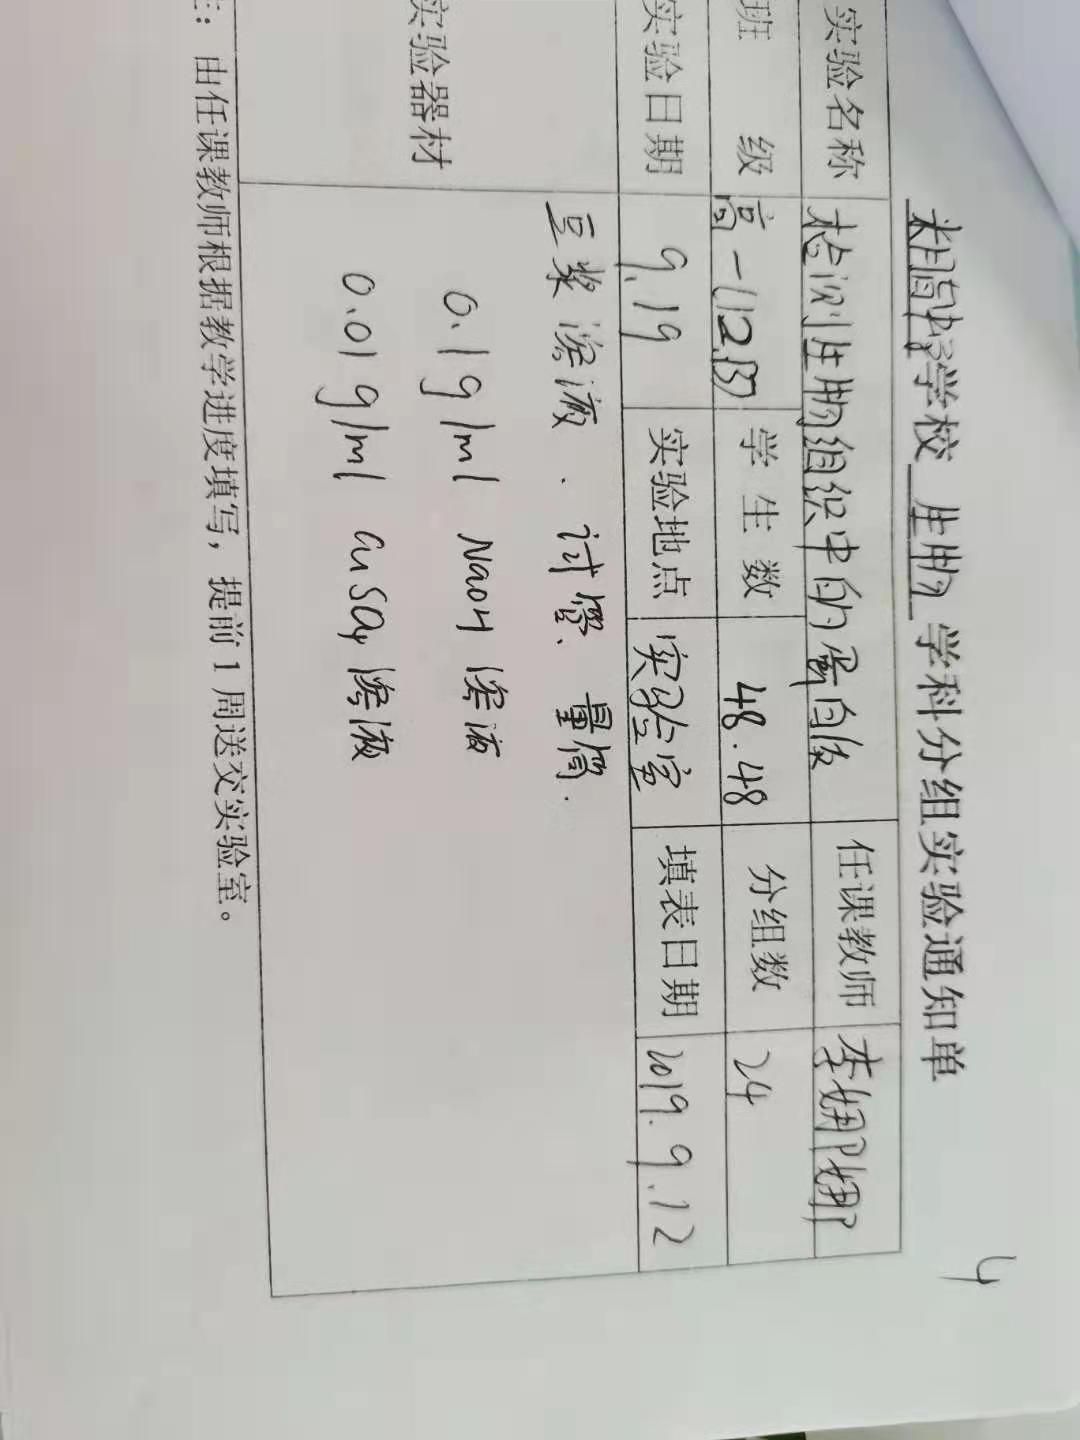 学校 生物 学科分组实验通知单
4
实验名称 检测生物组织中的蛋白质 任课教师 李娜娜
班 级 高一(12.13) 学生数 48.48 分组数 24
实验日期 9.19 实验地点 实验室 填表日期 2019.9.12
实验器材 豆浆溶液、试管、量筒.
0.1g/ml NaOH 溶液
0.01g/ml CuSO4 溶液
注：由任课教师根据教学进度填写，提前1周送交实验室。